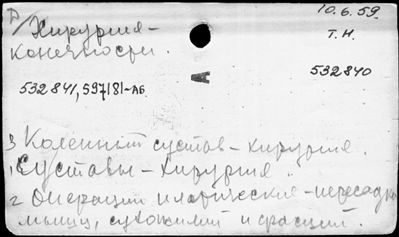 Д/ Хирургия-
конечности.
10.6.59.
Т.Н.
532840
532841,597181-АБ
А
3 Коленный сустав-хирургия.
1 Суставы-хирургия.
2 Операции пластические-пересадка
мышц, сухожилий и фасций.